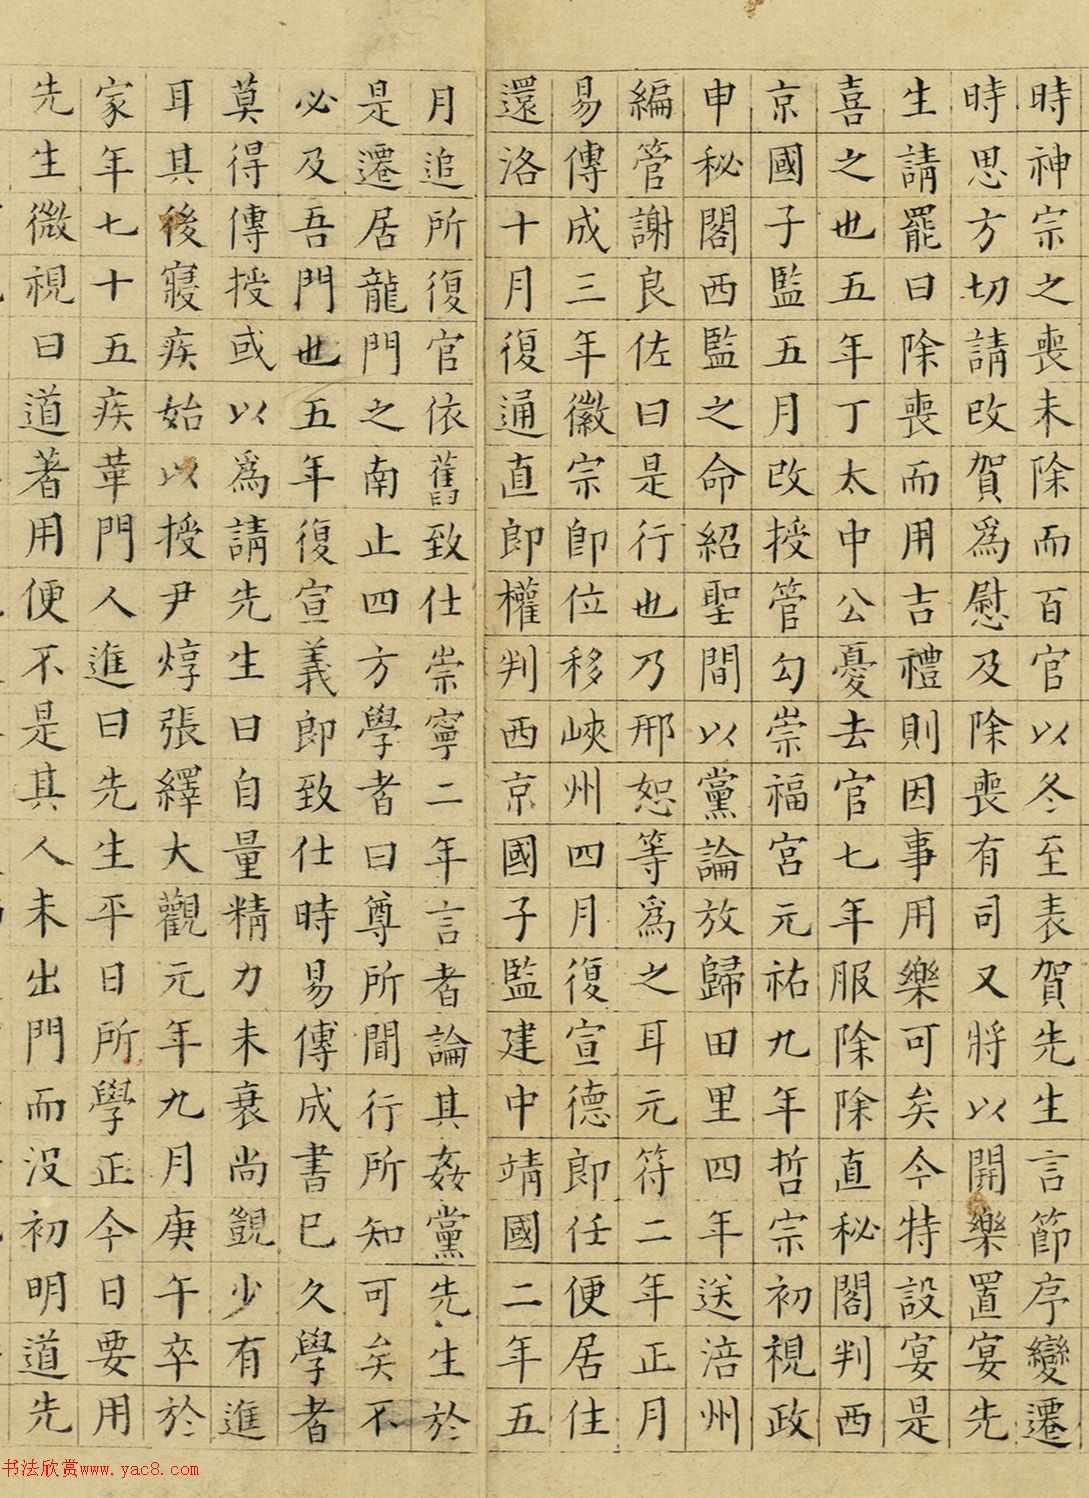 時神宗之喪未除而百官以冬至表賀先生言節序變遷
時思方切請改賀為慰及除喪有司又將以開樂置宴先
生請罷曰除喪而用吉禮則因事用樂可矣今特設宴是
喜之也五年丁太中公憂去官七年服除除直秘閣判西
京國子監五月改授管勾崇福宮元祐九年哲宗初視政
申秘閣西監之命紹聖間以黨論放歸田里四年送涪州
編管謝良佐曰是行也乃邢恕等為之耳元符二年正月
易傳成三年徽宗即位移峽州四月復宣德郎任便居住
還洛十月復通直郎權判西京國子監建中靖國二年五
月追所復官依舊致仕崇寧二年言者論其姦黨先生於
是遷居龍門之南止四方學者曰尊所聞行所知可矣不
必及吾門也五年復宣義郎致仕時易傳成書已久學者
莫得傳授或以為請先生曰自量精力未衰尚覬少有進
耳其後寢疾始以授尹焞張繹大觀元年九月庚午卒於
家年七十五疾革門人進曰先生平日所學正今日要用
先生微視曰道著用便不是其人未出門而沒初明道先
书法欣赏www.yac8.com